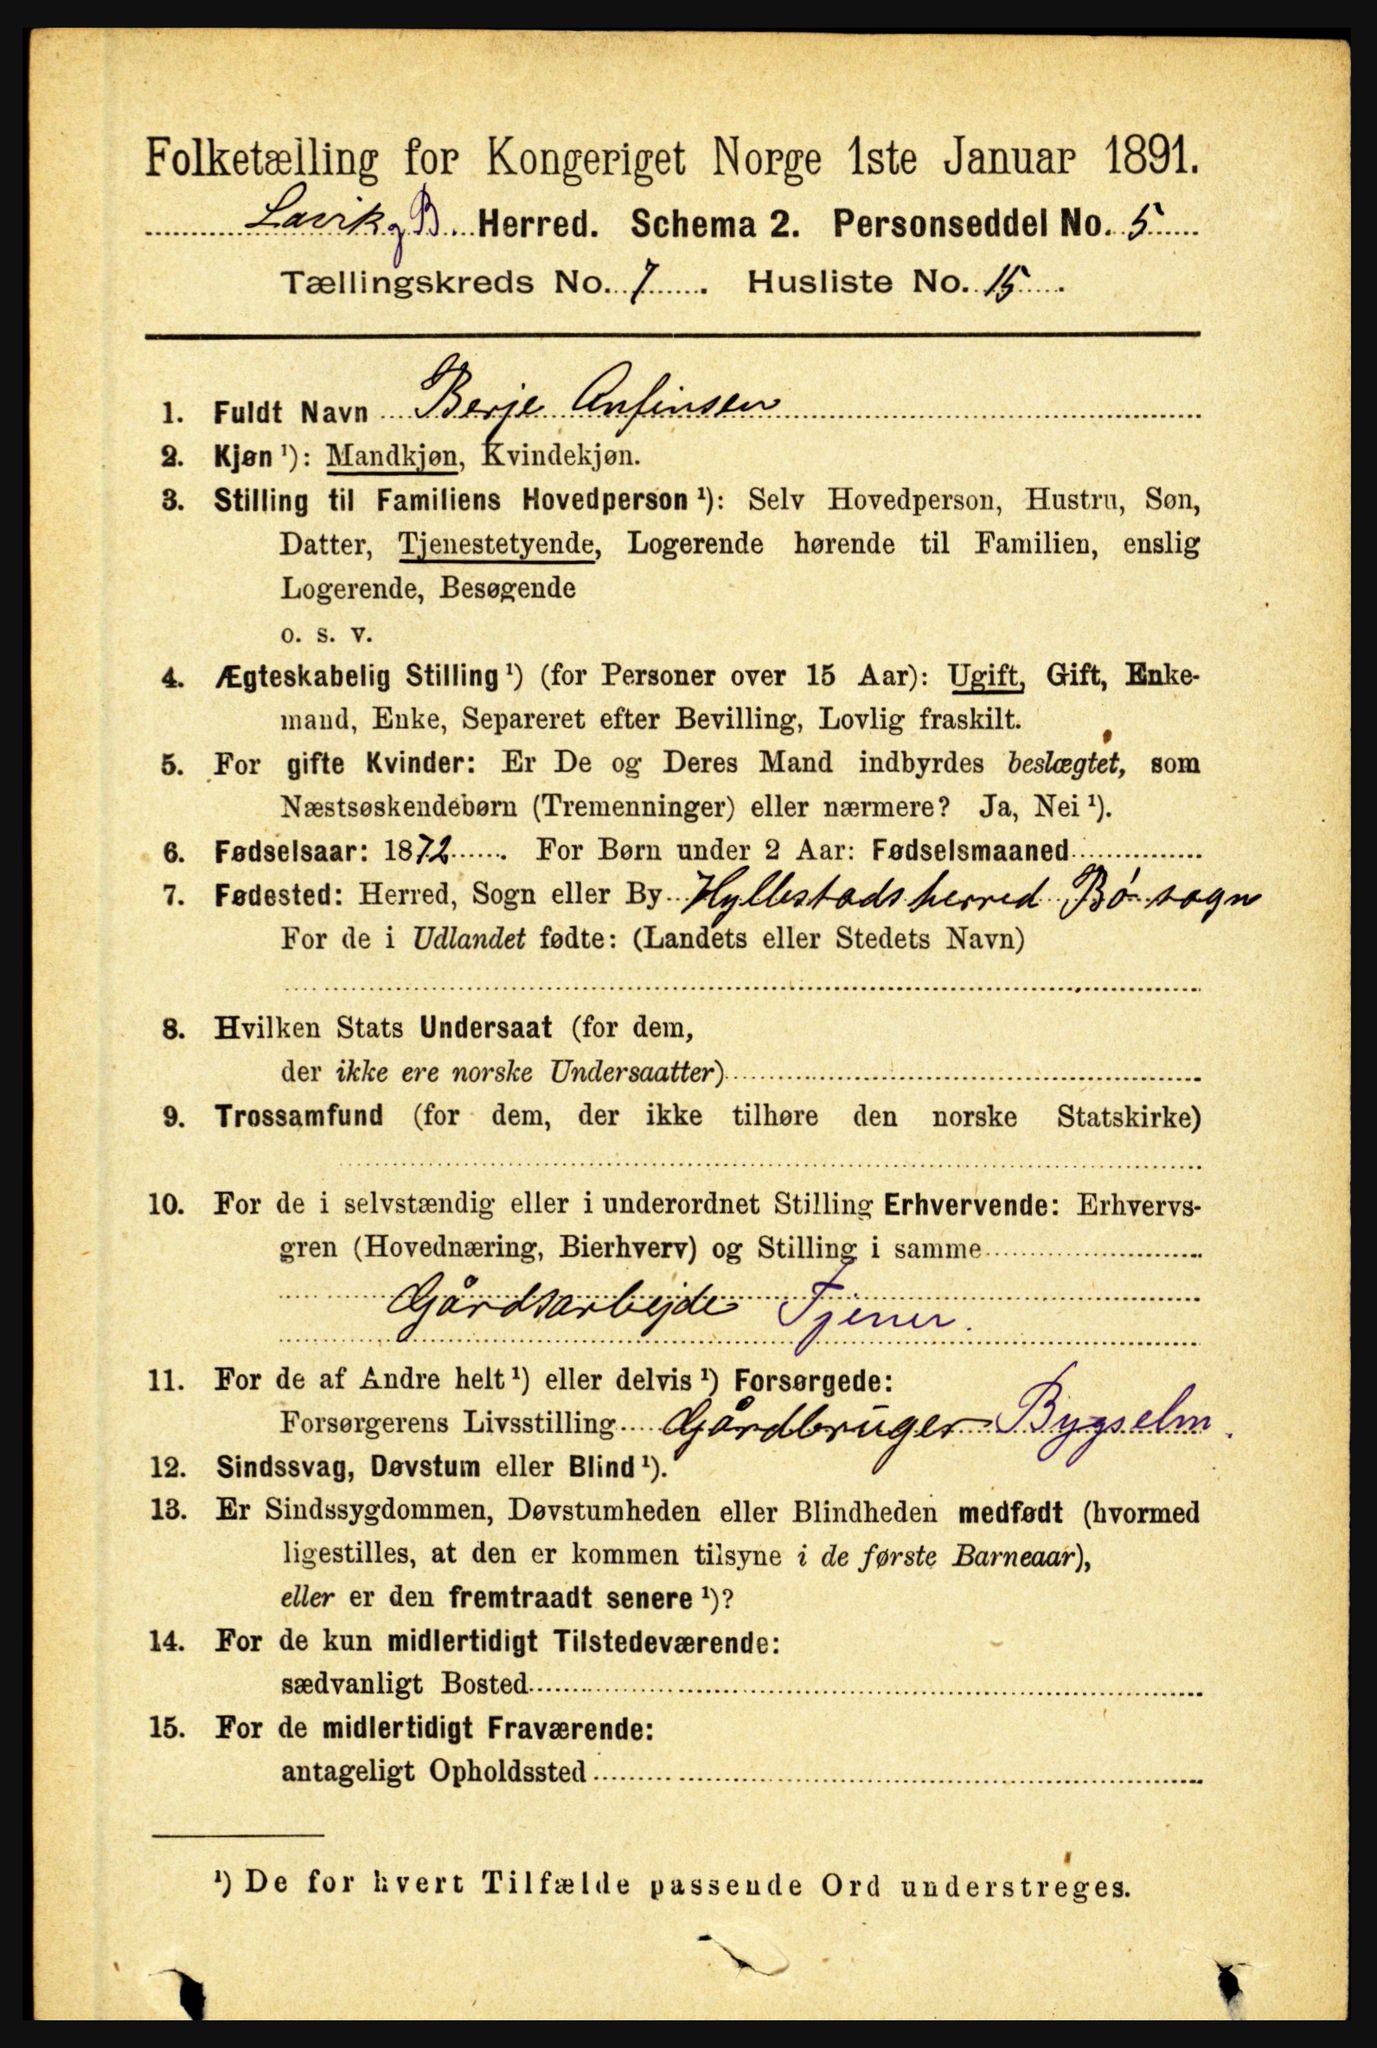 Folketælling for Kongeriget Norge 1ste Januar 1891.
Lavik og B. Herred. Schema 2. Personseddel No. 5
Tællingskreds No. 7. Husliste No. 15.
1. Fuldt Navn Berje Anfinsen
2. Kjøn ¹): Mandkjøn, Kvindekjøn.
3. Stilling til Familiens Hovedperson ¹): Selv Hovedperson, Hustru, Søn,
Datter, Tjenestetyende, Logerende hørende til Familien, enslig
Logerende, Besøgende
o. s. v.
4. Ægteskabelig Stilling ¹) (for Personer over 15 Aar): Ugift, Gift, Enke-
mand, Enke, Separeret efter Bevilling, Lovlig fraskilt.
5. For gifte Kvinder: Er De og Deres Mand indbyrdes beslægtet, som
Næstsøskendebørn (Tremenninger) eller nærmere? Ja, Nei ¹).
6. Fødselsaar: 1872. For Børn under 2 Aar: Fødselsmaaned
7. Fødested: Herred, Sogn eller By Hyllestads herred Bø sogn
For de i Udlandet fødte: (Landets eller Stedets Navn)
8. Hvilken Stats Undersaat (for dem,
der ikke ere norske Undersaatter)
9. Trossamfund (for dem, der ikke tilhøre den norske Statskirke)
10. For de i selvstændig eller i underordnet Stilling Erhvervende: Erhvervs-
gren (Hovednæring, Bierhverv) og Stilling i samme
Gårdsarbejde Tjener.
11. For de af Andre helt ¹) eller delvis ¹) Forsørgede:
Forsørgerens Livsstilling Gårdbruger Bygselm.
12. Sindssvag, Døvstum eller Blind ¹).
13. Er Sindssygdommen, Døvstumheden eller Blindheden medfødt (hvormed
ligestilles, at den er kommen tilsyne i de første Barneaar),
eller er den fremtraadt senere ¹)?
14. For de kun midlertidigt Tilstedeværende:
sædvanligt Bosted
15. For de midlertidigt Fraværende:
antageligt Opholdssted
¹) De for hvert Tilfælde passende Ord understreges.